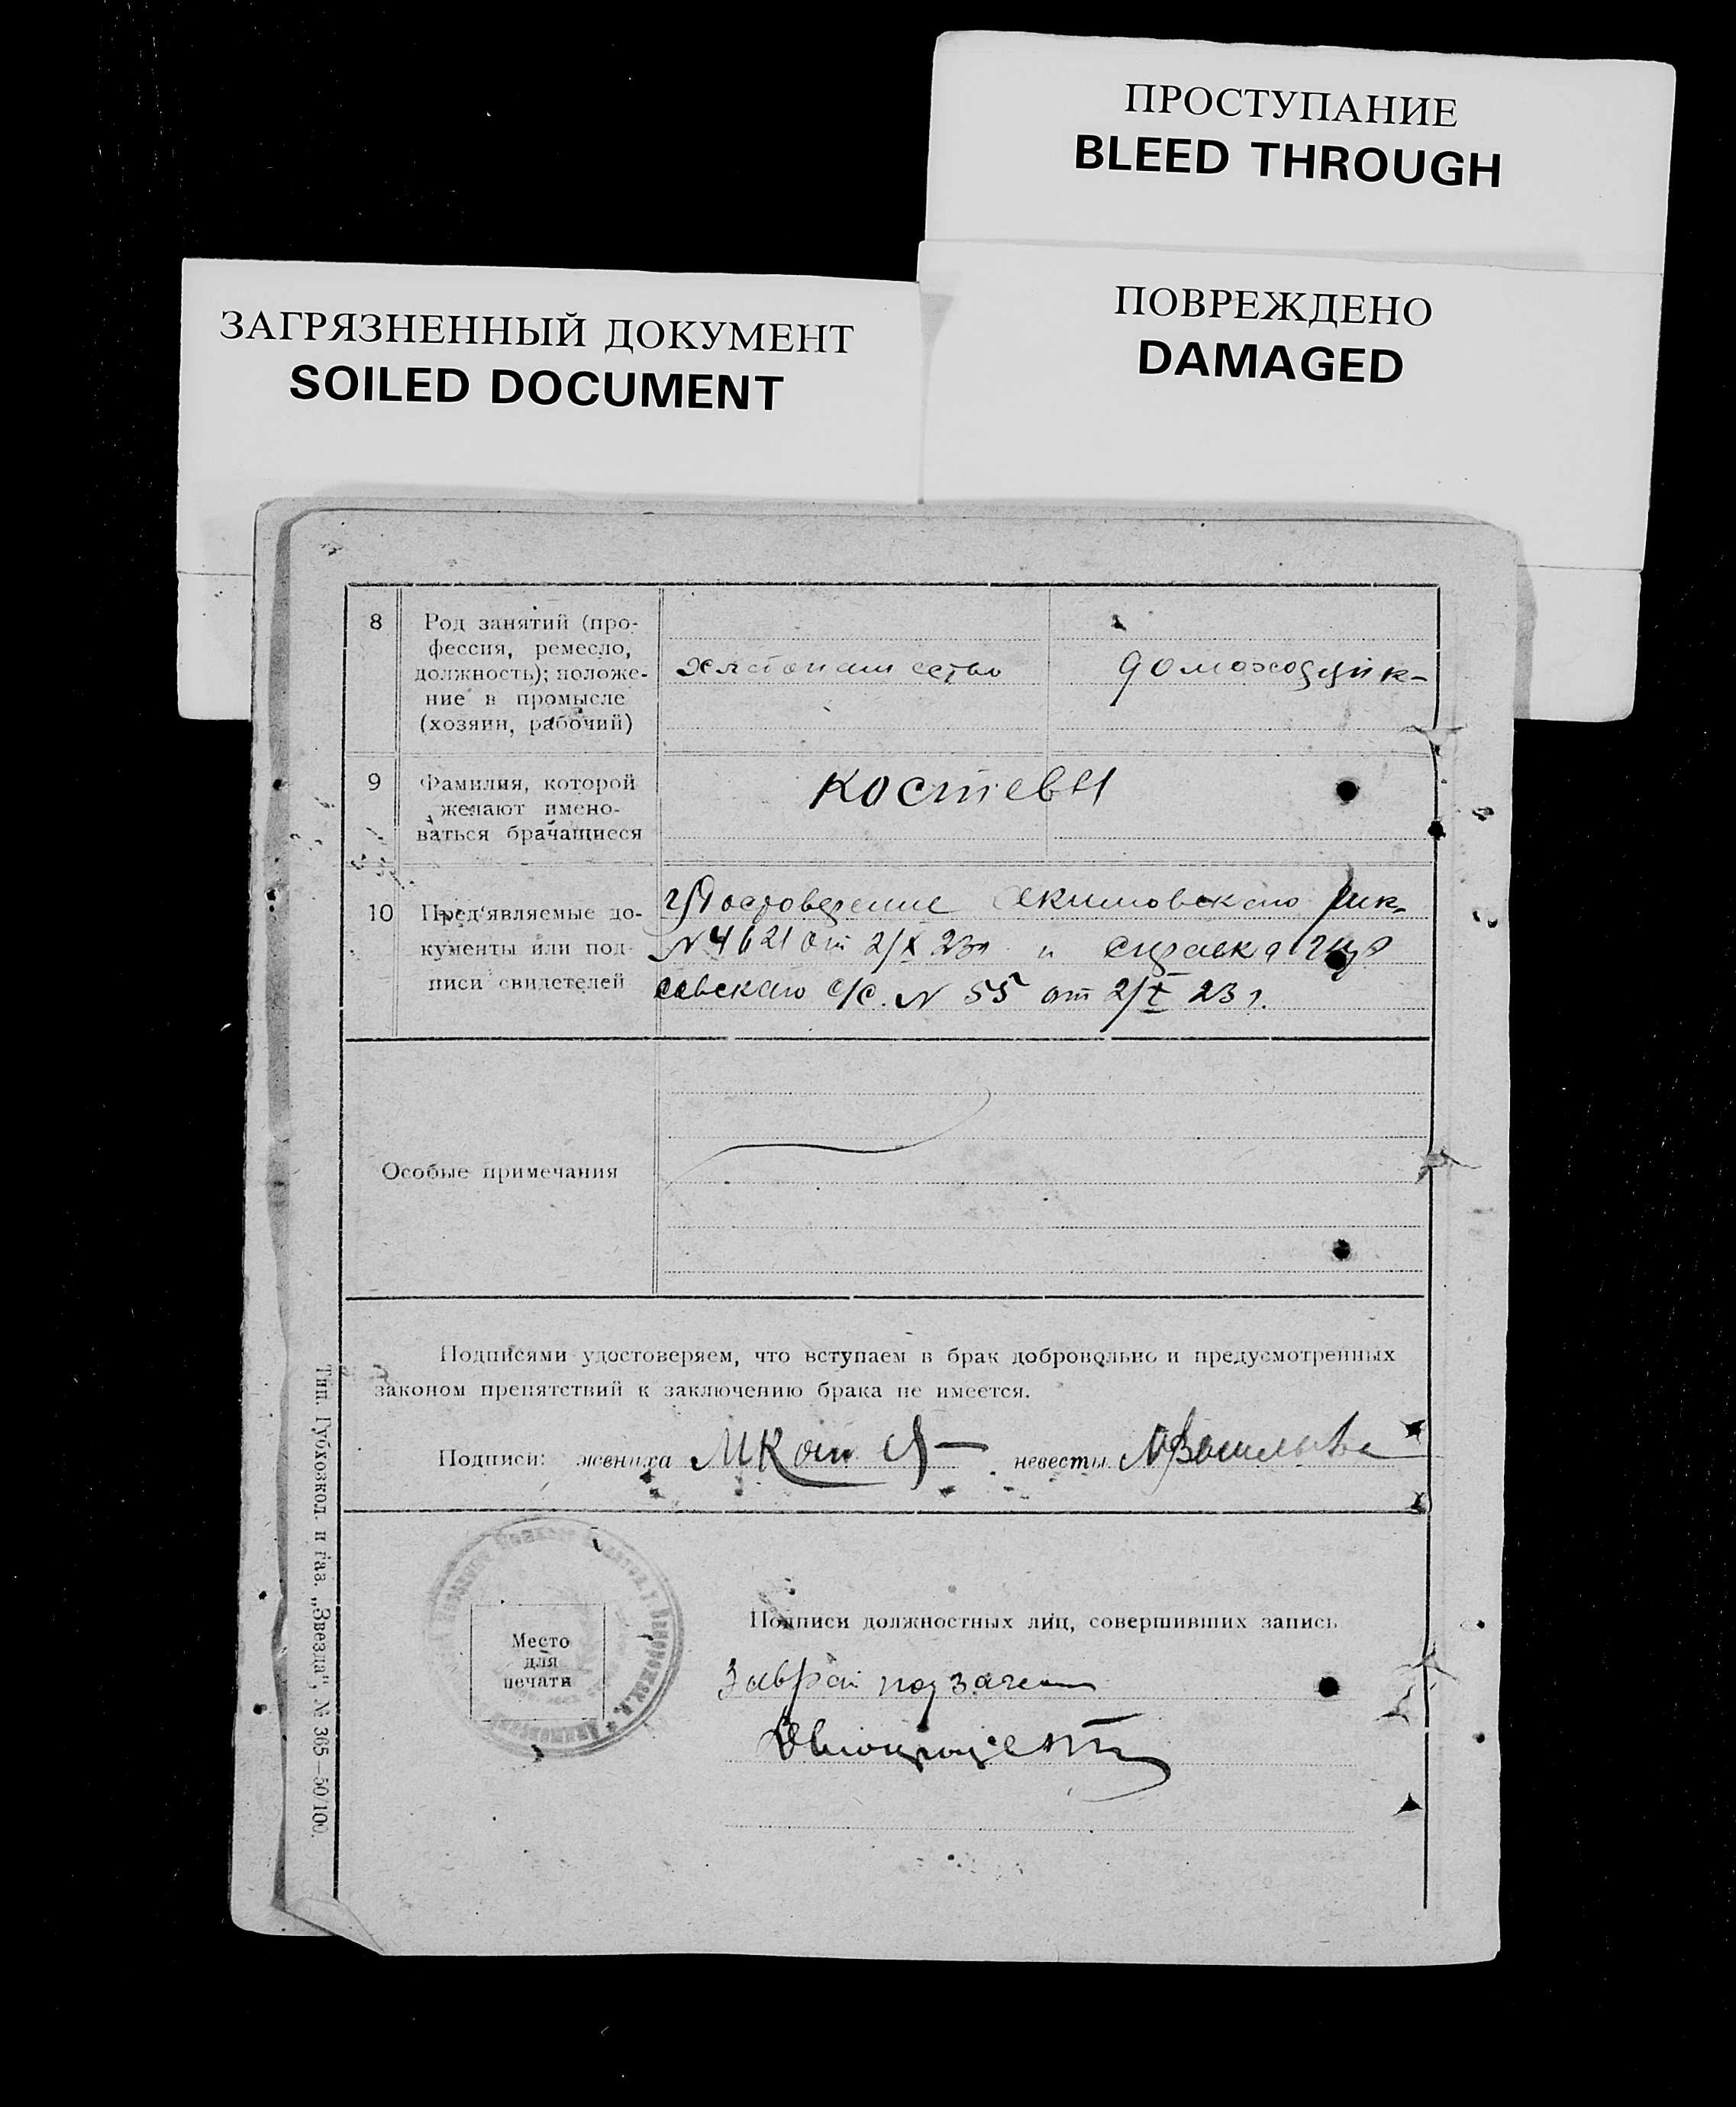 ПРОСТУПАНИЕ
BLEED THROUGH
ПОВРЕЖДЕНО
DAMAGED
ЗАГРЯЗНЕННЫЙ ДОКУМЕНТ
SOILED DOCUMENT
8
Род занятий (про-
фессия, ремесло,
должность); положе-
ние в промысле
(хозяин, рабочий)
9
Фамилия, которой
желают имено-
ваться брачащиеся
Костевы
10
Пред'являемые до-
кументы или под-
писи свидетелей
Удостоверение Акимовского рик
N 4621 от 2/X 23г и справка
севского с/с. N 55 от 2/X 23 г.
Особые примечания
Подписями удостоверяем, что вступаем в брак добровольно и предусмотренных
законом препятствий к заключению брака не имеется.
Подписи: жениха невесты
Место
для
печати
Подписи должностных лиц, совершивших запись
Тип. Губхозкол. и газ. „Звезда", № 365—50/100.